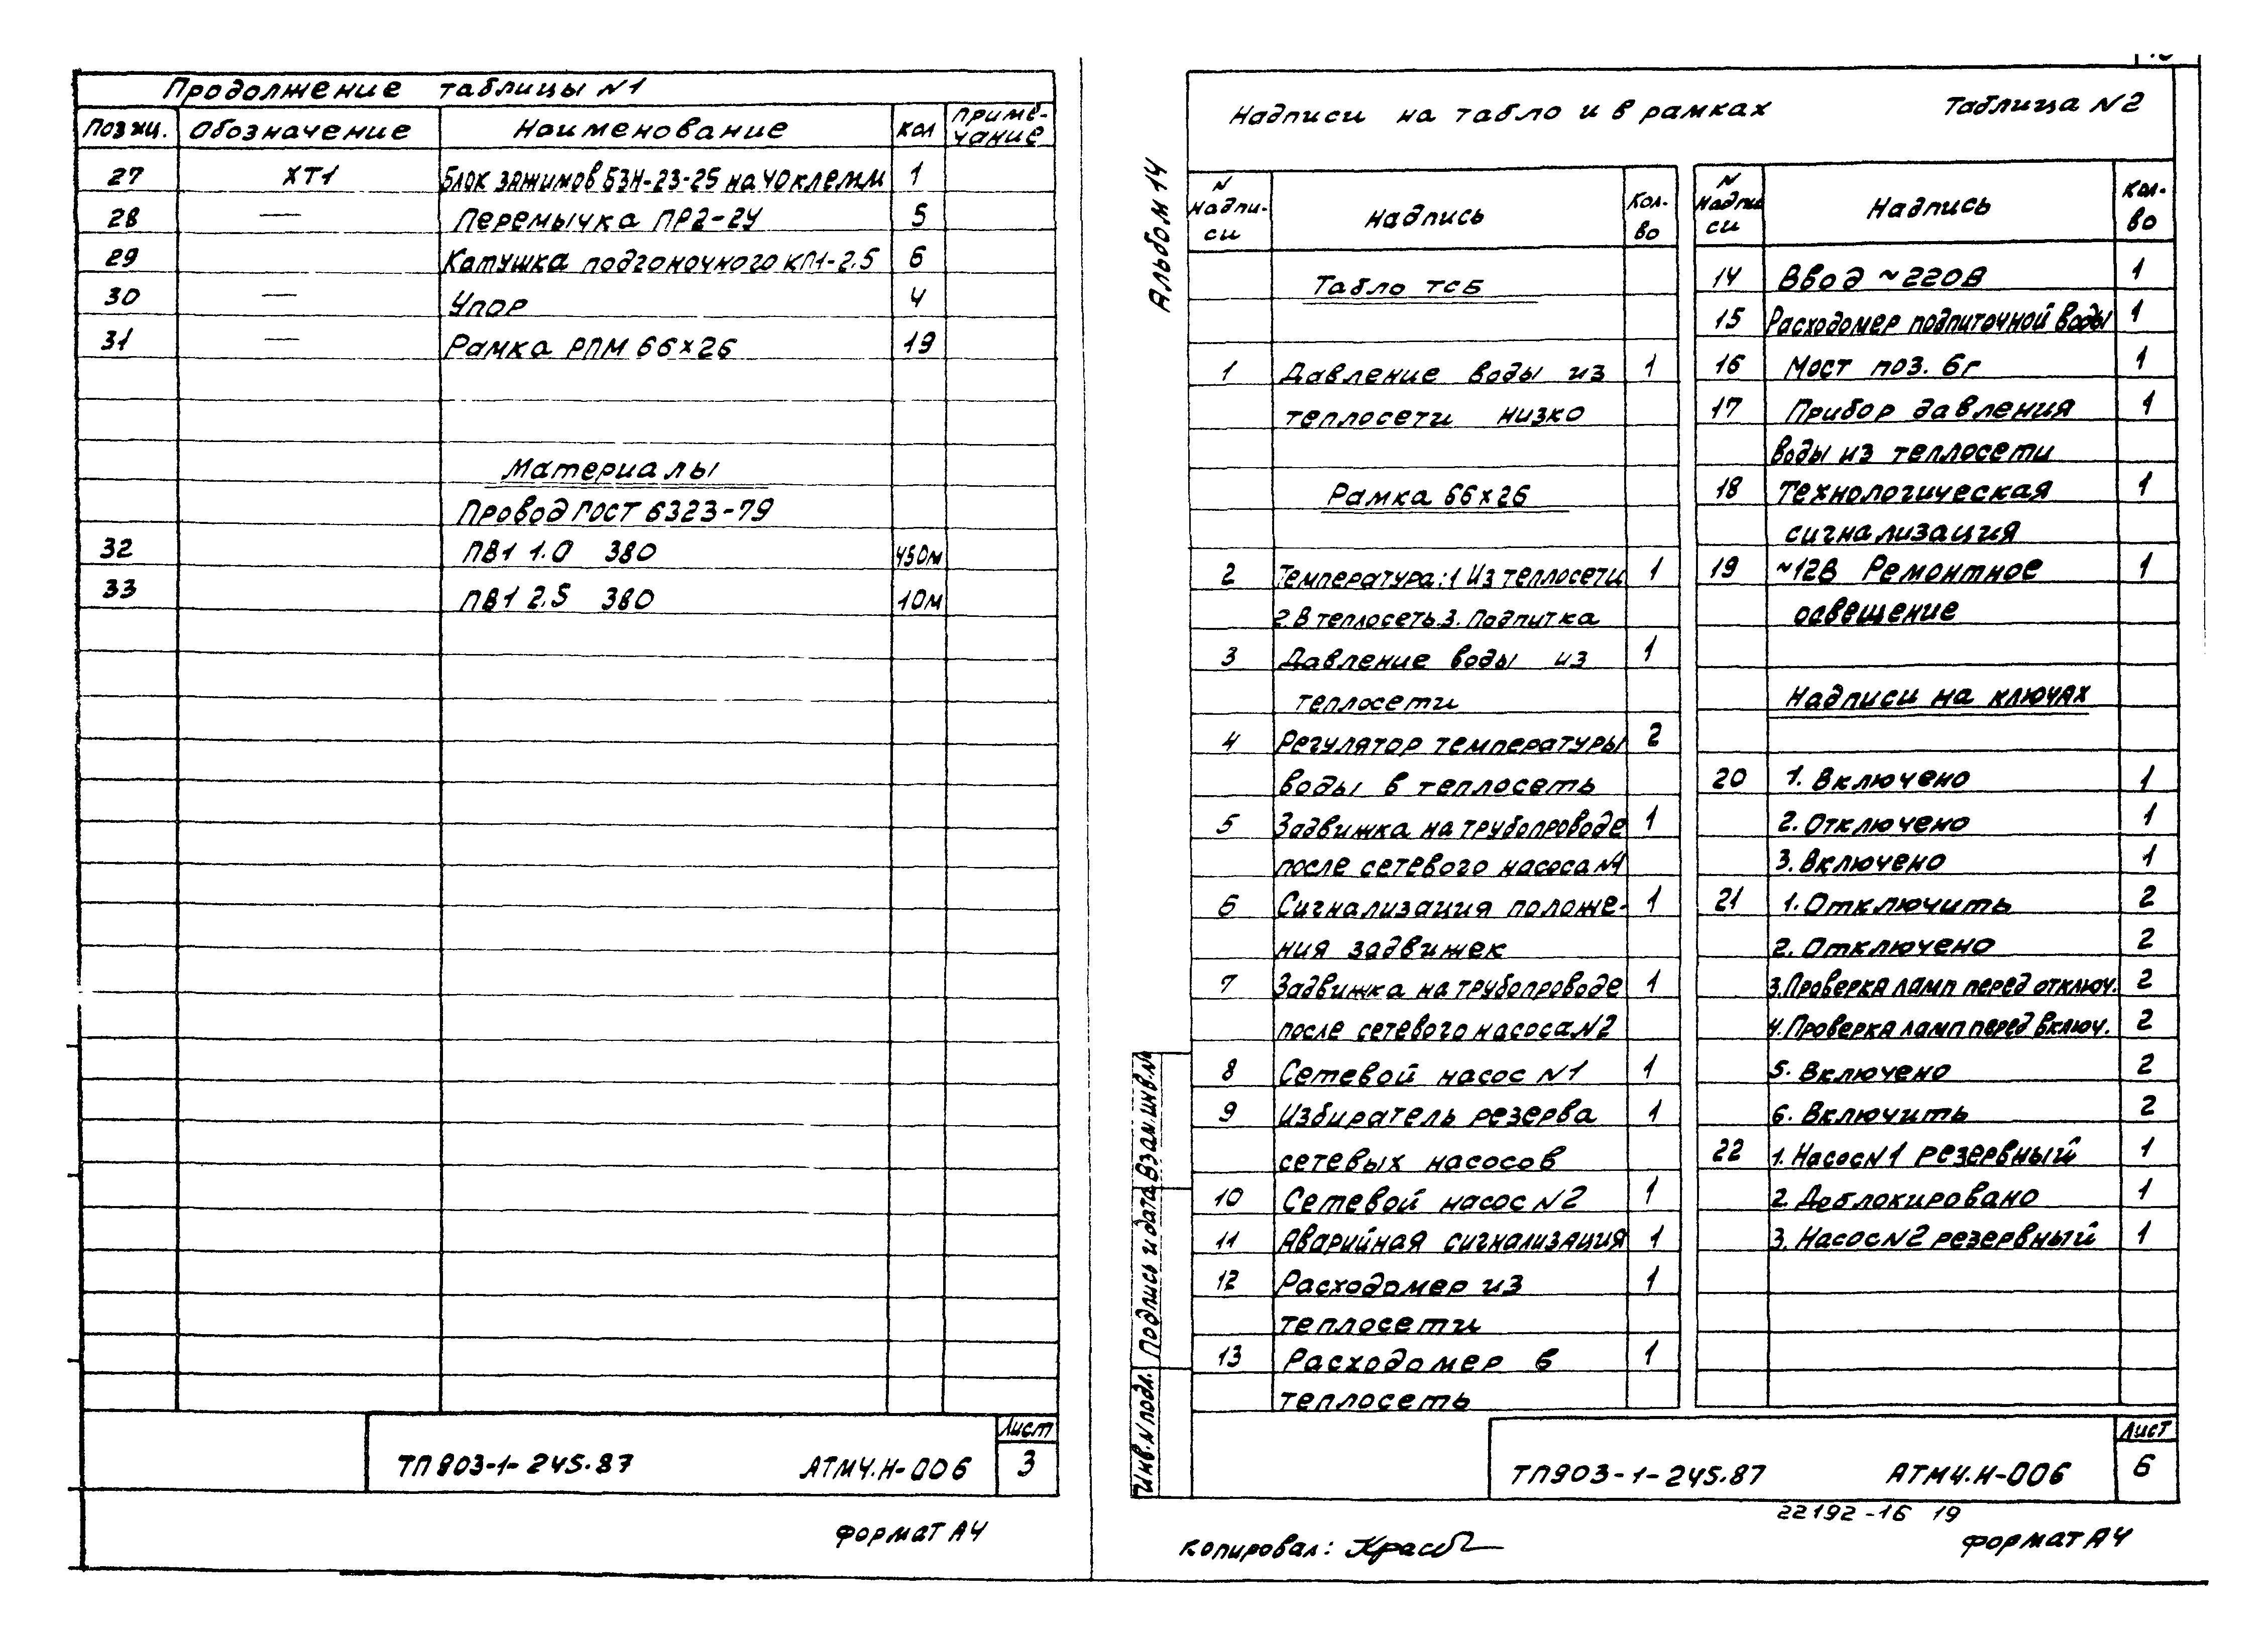 Продолжение таблицы N1
Поз иц. Обозначение Наименование Кол Приме-
чание
27 XT1 Блок зажимов БЗН-23-25 на 40 клемм 1
28 — Перемычка ПР2-2У 5
29 Катушка подгоночного КП1-2.5 6
30 — Упор 4
31 — Рамка РПМ 66×26 19
Материалы
Провод ГОСТ 6323-79
32 ПВ1 1.0 380 450м
33 ПВ1 2.5 380 10м
ТП 903-1-245.87 АТМ4.Н-006
Лист
3
Формат А4
Альбом 14
Надписи на табло и в рамках Таблица N2
N
надпи-
си
Надпись
Кол-
во
Табло ТСБ
1 Давление воды из 1
теплосети низко
Рамка 66×26
2 Температура: 1 Из теплосети 1
2. В теплосеть. 3. Подпитка
3 Давление воды из 1
теплосети
4 Регулятор температуры 2
воды в теплосеть
5 Задвижка на трубопроводе 1
после сетевого насоса N1
6 Сигнализация положе- 1
ния задвижек
7 Задвижка на трубопроводе 1
после сетевого насоса N2
8 Сетевой насос N1 1
9 Избиратель резерва 1
сетевых насосов
10 Сетевой насос N2 1
11 Аварийная сигнализация 1
12 Расходомер из 1
теплосети
13 Расходомер в 1
теплосеть
N
надпи
си
Надпись
Кол-
во
14 Ввод ~220В 1
15 Расходомер подпиточной воды 1
16 Мост поз. 6г 1
17 Прибор давления 1
воды из теплосети
18 Технологическая 1
сигнализация
19 ~12В Ремонтное 1
освещение
Надписи на ключах
20 1. Включено 1
2. Отключено 1
3. Включено 1
21 1. Отключить 2
2. Отключено 2
3. Проверка ламп перед отключ. 2
4. Проверка ламп перед включ. 2
5. Включено 2
6. Включить 2
22 1. Насос N1 резервный 1
2. Деблокировано 1
3. Насос N2 резервный 1
Взам. инв. №
Подпись и дата
Инв. N подл.
ТП903-1-245.87 АТМ4.Н-006
Лист
6
22192-16 19
Копировал:
Формат А4